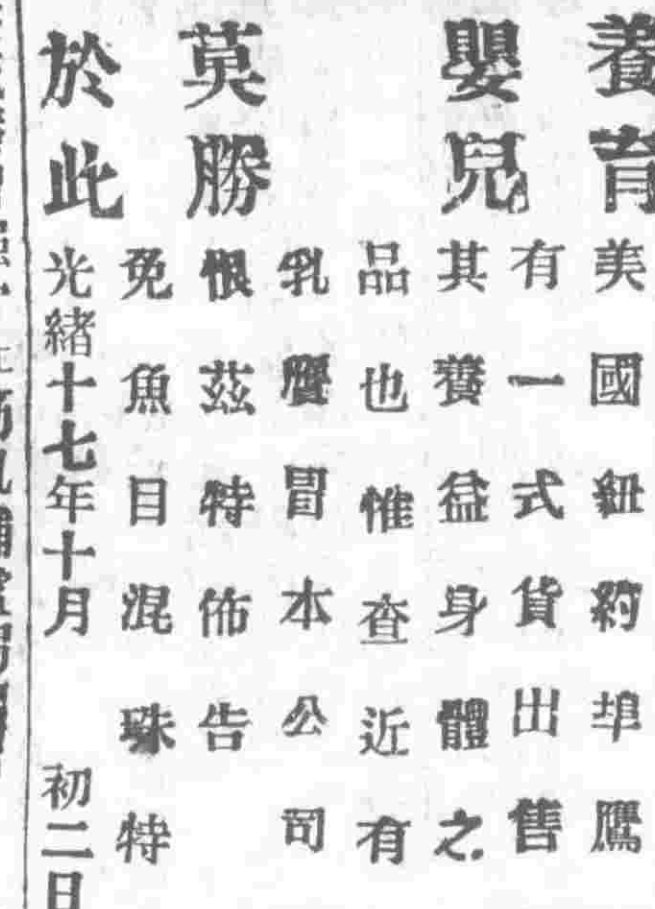 養育
嬰兒
莫勝
於此
美國紐約埠鷹
有一式貨出售
其養益身體之
品也惟查近有
乳贋冒本公司
恨茲特佈告
免魚目混珠特
光緒十七年十月 初二日